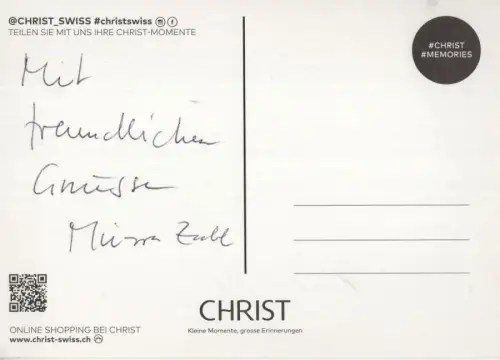 @CHRIST_SWISS #christswiss
TEILEN SIE MIT UNS IHRE CHRIST-MOMENTE
#CHRIST
#MEMORIES
Mit
freundlichen
Grüssen
CHRIST
Kleine Momente, grosse Erinnerungen
ONLINE SHOPPING BEI CHRIST
www.christ-swiss.ch